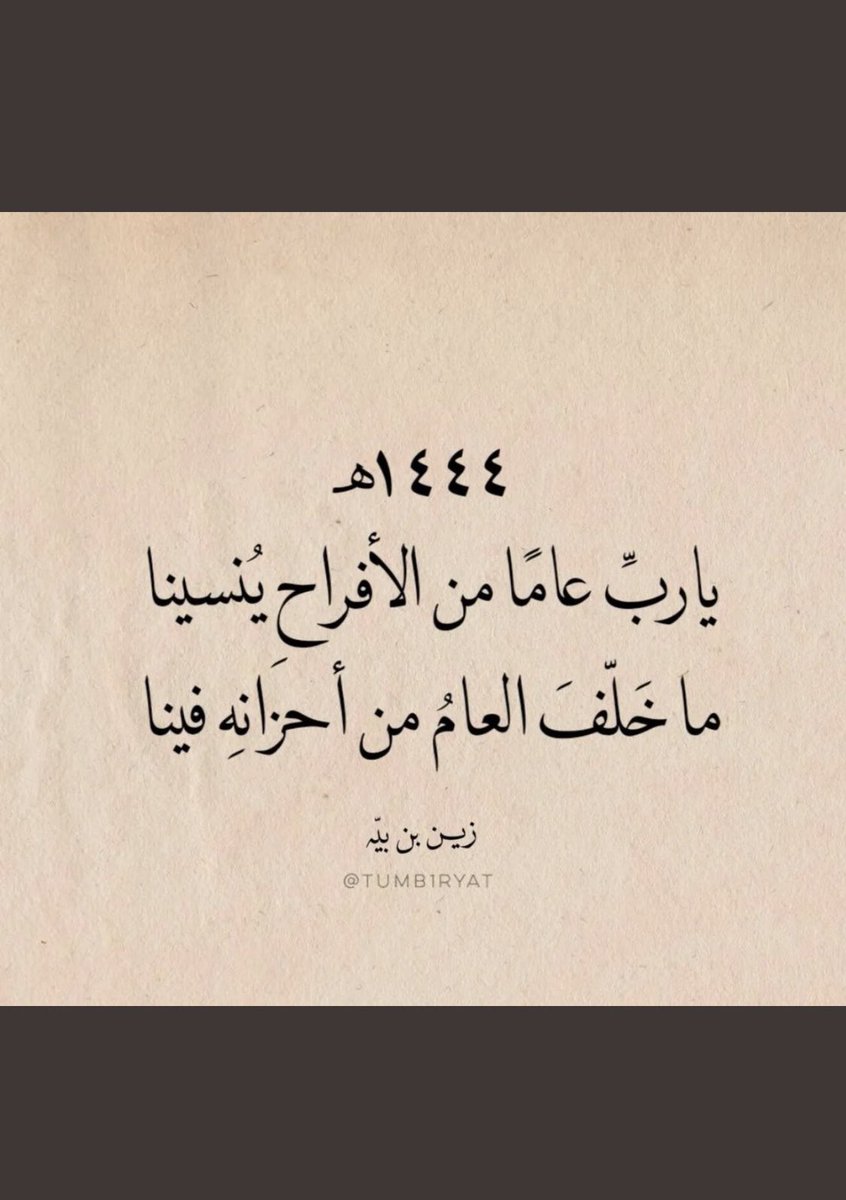 ١٤٤٤هـ
يا ربِّ عامًا من الأفراحِ يُنسينا
ما خَلّفَ العامُ من أحزَانهِ فينا
زين بن بيّه
@TUMB1RYAT